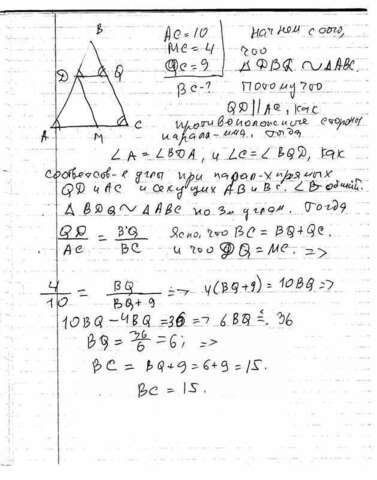 B
D Q
A M C
AC = 10
MC = 4
QC = 9
BC - ?
Начнем с того,
что
△DBQ ~ △ABC.
Потому что
QD || AC, как
противоположные стороны
парал-мма. Тогда
∠A = ∠BDA, и ∠C = ∠BQD, как
соответств-е углы при парал-х прямых
QD и AC и секущих AB и BC. ∠B общий.
△BDQ ~ △ABC по 3м углам. Тогда
QD/AC = BQ/BC Ясно, что BC = BQ + QC.
и что DQ = MC. =>
4/10 = BQ/BQ+9 => 4(BQ+9) = 10BQ =>
10BQ - 4BQ = 36 => 6BQ = 36
BQ = 36/6 = 6; =>
BC = BQ + 9 = 6 + 9 = 15.
BC = 15.